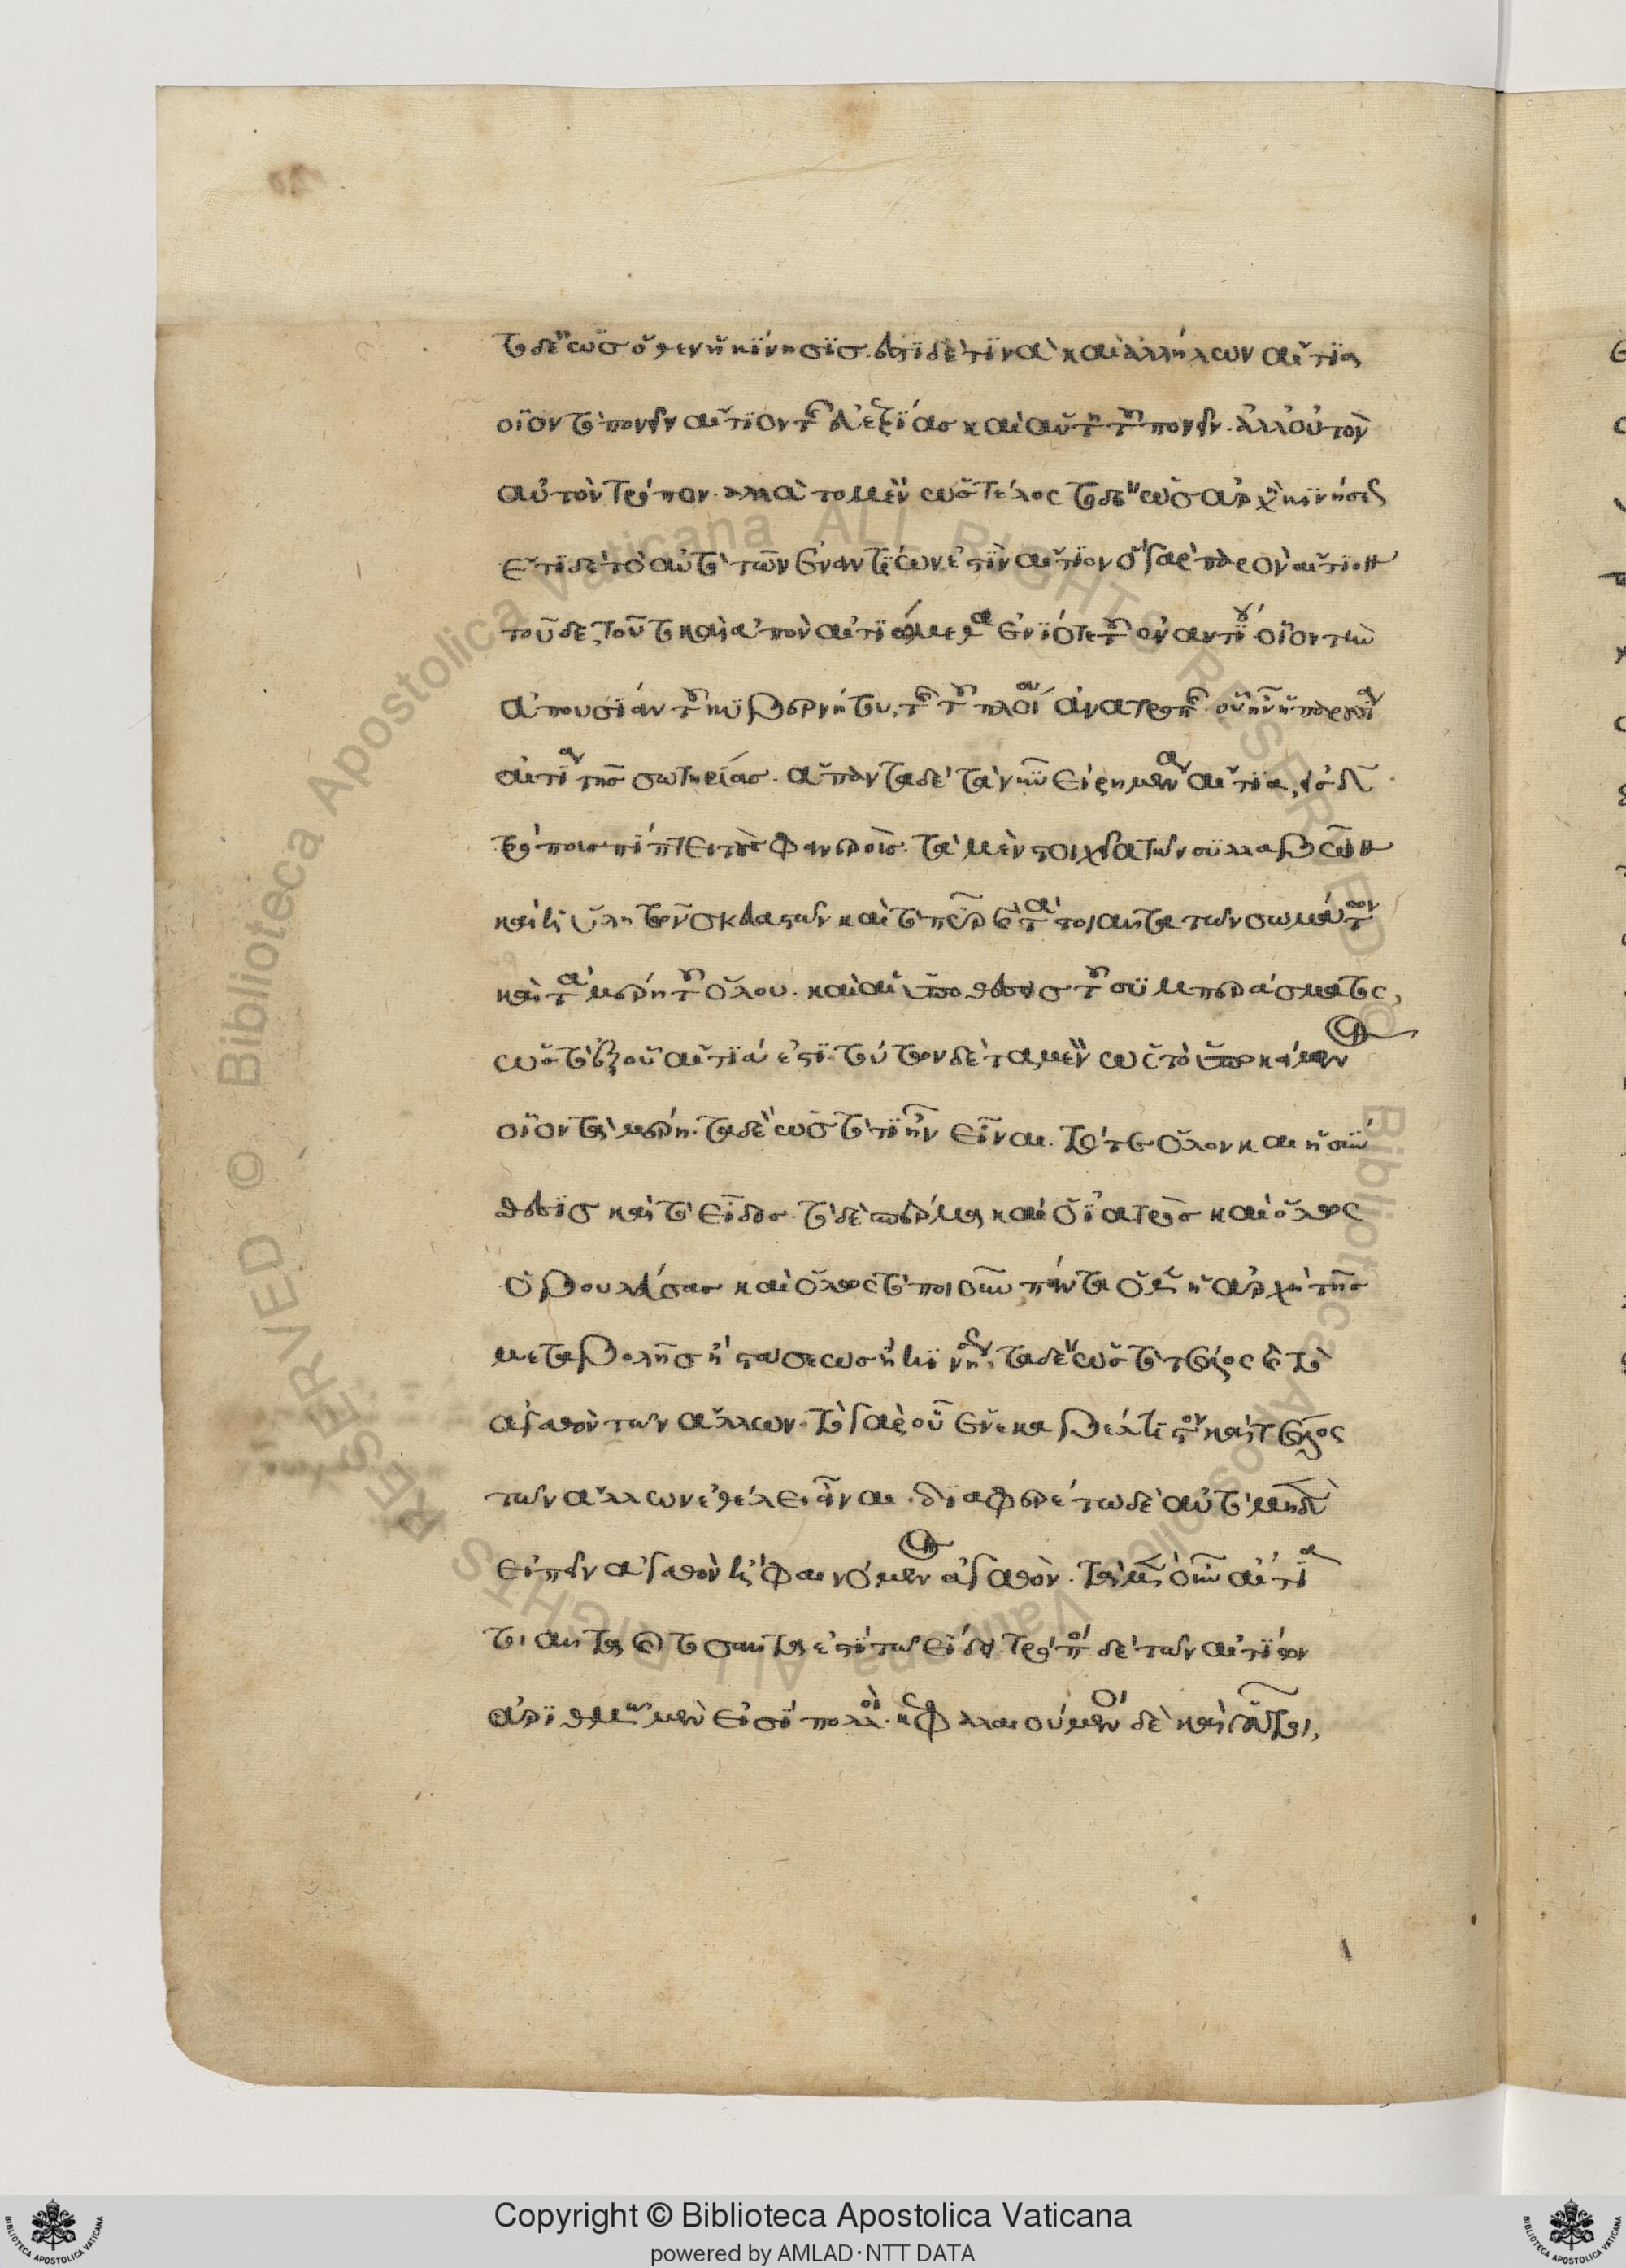 τὸ δ' ὡς ὅθεν ἡ κίνησις. ἔστι δέ τινα καὶ ἀλλήλων αἴτια
οἷον τὸ πονεῖν αἴτιον τῆς εὐεξίας καὶ αὕτη τοῦ πονεῖν. ἀλλ' οὐ τὸν
αὐτὸν τρόπον. ἀλλὰ τὸ μὲν ὡς τέλος τὸ δ' ὡς ἀρχὴ κινήσεως
ἔτι δὲ τὸ αὐτὸ τῶν ἐναντίων ἐστὶν αἴτιον ὃ γὰρ παρὸν αἴτιον
τοῦδε, τοῦτο καὶ ἀπὸν αἰτιώμεθα ἐνίοτε τοῦ ἐναντίου οἷον τὴν
ἀπουσίαν τοῦ κυβερνήτου, τῆς τοῦ πλοίου ἀνατροπῆς οὗ ἦν ἡ παρουσία
αἰτία τῆς σωτηρίας. ἅπαντα δὲ τὰ νῦν εἰρημένα αἴτια, εἰς δ
τρόπους πίπτει τοὺς φανερούς. τὰ μὲν στοιχεῖα τῶν συλλαβῶν
καὶ ἡ ὕλη τῶν σκευαστῶν καὶ τὸ πῦρ καὶ τὰ τοιαῦτα τῶν σωμάτων
καὶ τὰ μέρη τοῦ ὅλου. καὶ αἱ ὑποθέσεις τοῦ συμπεράσματος,
ὡς τὸ ἐξ οὗ αἴτιά ἐστι. τούτων δὲ τὰ μὲν ὡς τὸ ὑποκείμενον
οἷον τὰ μέρη. τὰ δὲ ὡς τὸ τί ἦν εἶναι. τό τε ὅλον καὶ ἡ σύν
θεσις καὶ τὸ εἶδος. τὸ δὲ σπέρμα καὶ ὁ ἰατρὸς καὶ ὅλως
ὁ βουλεύσας καὶ ὅλως τὸ ποιοῦν πάντα ὅθεν ἡ ἀρχὴ τῆς
μεταβολῆς ἢ στάσεως ἢ κινήσεως, τὰ δ' ὡς τὸ τέλος καὶ τὸ
ἀγαθὸν τῶν ἄλλων. τὸ γὰρ οὗ ἕνεκα βέλτιστον καὶ τέλος
τῶν ἄλλων ἐθέλει εἶναι. διαφερέτω δὲ αὐτὸ μηδὲν
εἰπεῖν ἀγαθὸν ἢ φαινόμενον ἀγαθόν. τὰ μὲν οὖν αἴτια
τοιαῦτα καὶ τοσαῦτά ἐστι τῷ εἴδει. τρόποι δὲ τῶν αἰτίων
ἀριθμῷ μὲν εἰσὶ πολλοὶ. κεφαλαιούμενοι δὲ καὶ οὗτοι,